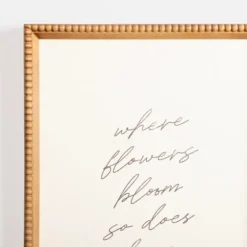 where
flowers
bloom
so does